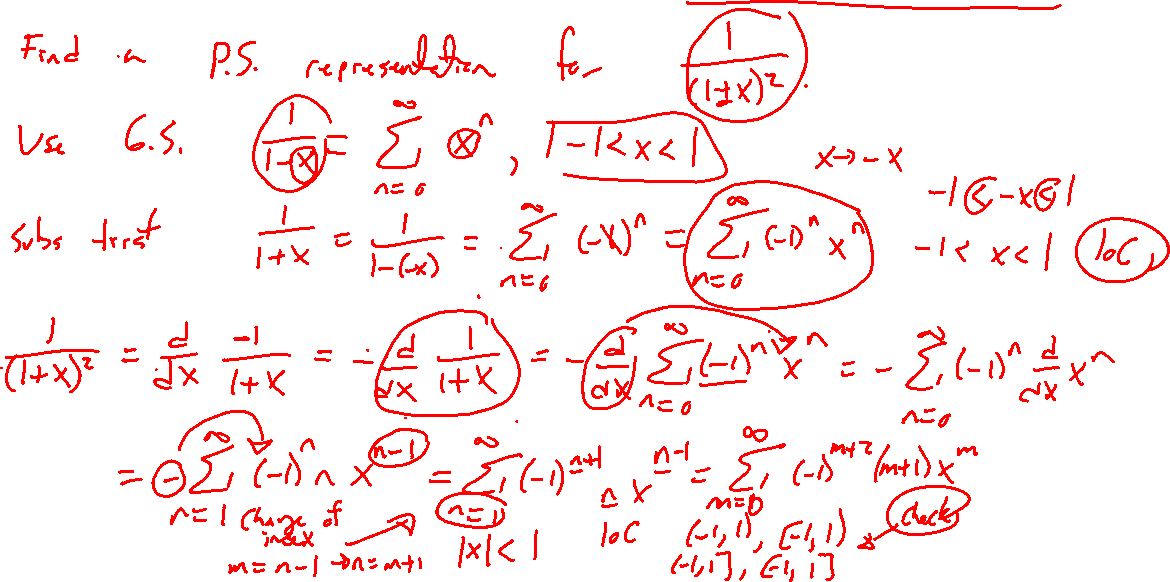 Find a P.S. representation for 1/(1+x)²
Use G.S. 1/(1-x) = ∑_{n=0}^{∞} x^n, |-1<x<1 x→-x
-1<-x<1
subs first 1/(1+x) = 1/(1-(-x)) = ∑_{n=0}^{∞} (-x)^n = ∑_{n=0}^{∞} (-1)^n x^n -1<x<1 IoC
1/(1+x)² = d/dx -1/(1+x) = - d/dx 1/(1+x) = - d/dx ∑_{n=0}^{∞} (-1)^n x^n = - ∑_{n=0}^{∞} (-1)^n d/dx x^n
= - ∑_{n=1}^{∞} (-1)^n n x^{n-1} = ∑_{n=1}^{∞} (-1)^{n+1} n x^{n-1} = ∑_{m=0}^{∞} (-1)^{m+2} (m+1) x^m
change of index |x|<1 IoC (-1,1), [-1,1) check
m=n-1 → n=m+1 (-1,1], [-1,1]